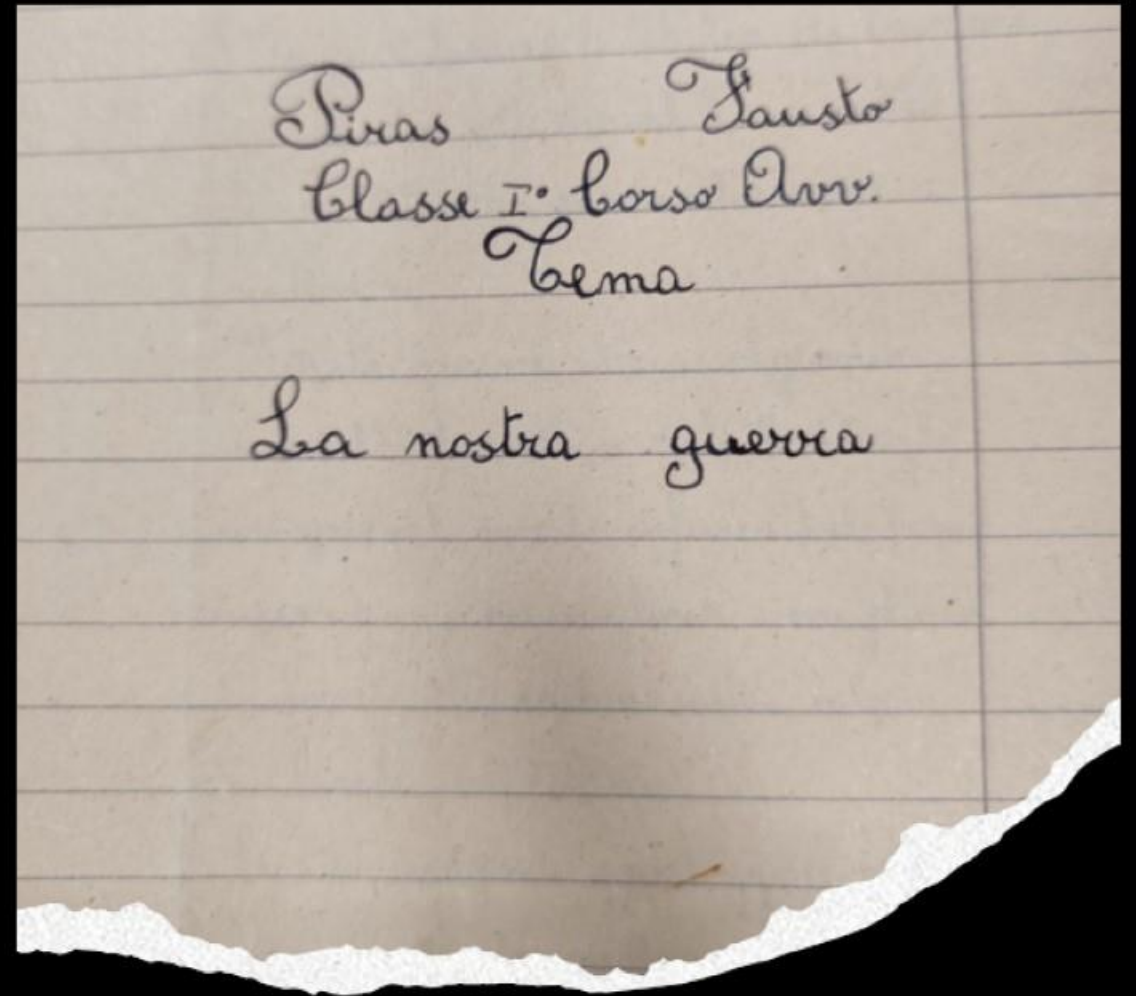 Piras Fausto
Classe I° Corso Avv.
Tema
La nostra guerra